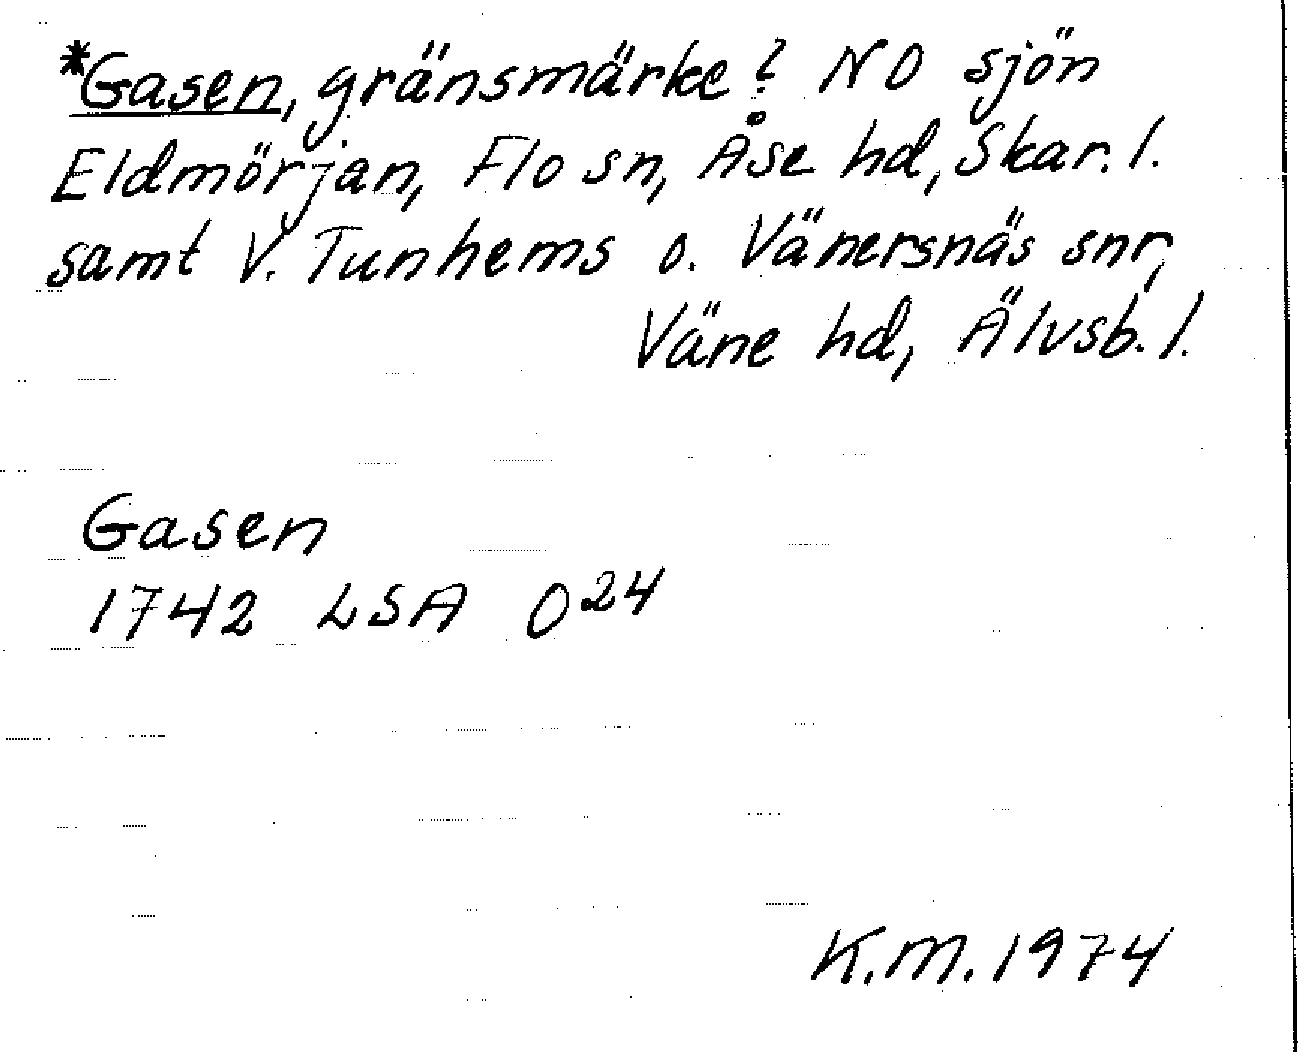 *Gasen, gränsmärke? NO sjön
Eldmörjan, Flo sn, Åse hd, Skar. l.
samt V. Tunhems o. Vänersnäs snr,
Väne hd, Älvsb. l.
Gasen
1742 LSA O24
K.M. 1974